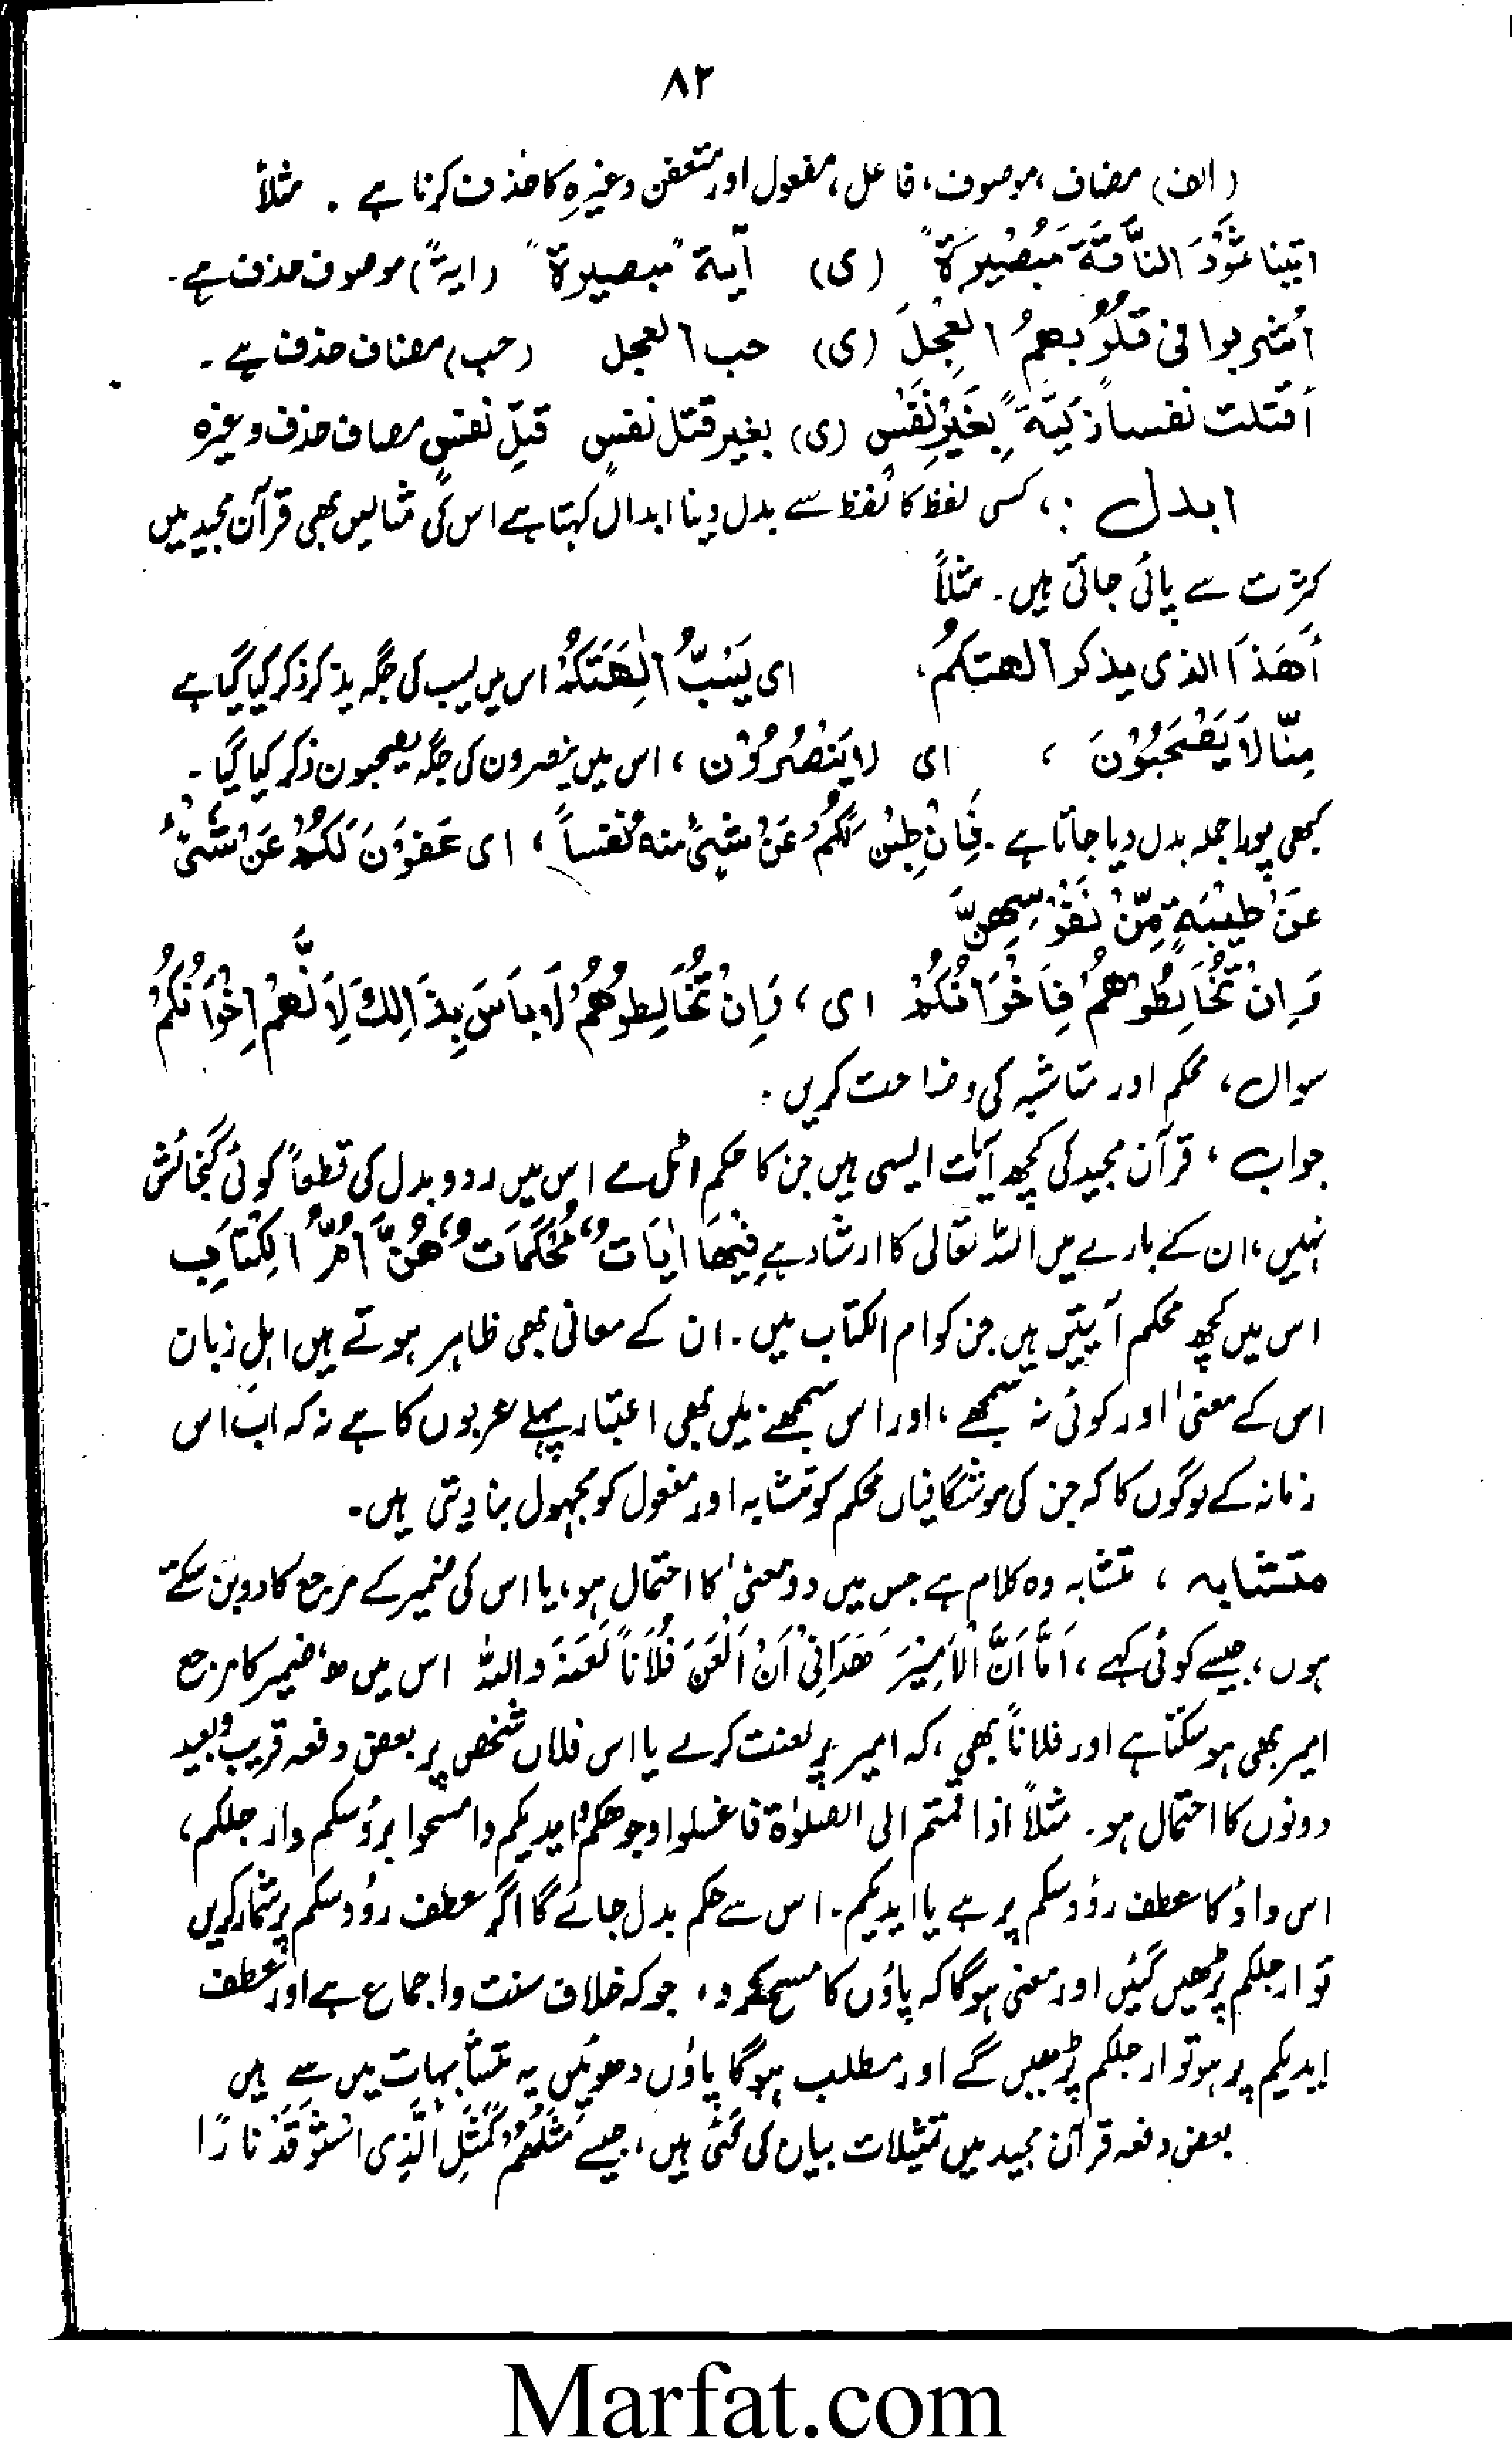 ۸۲
(الف) مضاف، موصوف، فاعل، مفعول اور متعفن وغیرہ کا حذف کرنا ہے . مثلاً
اتینا ثَمُوْدَ النَّاقَةَ مَبُصْیِرَةً (ی) آیة "مبصیرة" (ایة) موصوف حذف ہے۔
اُشربوا فی قلُوُبهمُ العِجْلَ (ی) حب العجل (حب) مضاف حذف ہے۔
اَقتلت نفساً زکیَّةً بِغَیْرِ نَفَسٍ (ی) بغیر قتل نفسٍ قبلِ نفسٍ مصاف حذف وغیرہ
ابدل :، کسی لفظ کا لفظ سے بدل دینا ابدال کہتا ہے اس کی مثالیں بھی قرآن مجید میں
کثرت سے پائی جاتی ہیں۔ مثلاً
أَهَذَا الذی یذکر الهتکمُ، ای یَسَبُّ اٰلِهَتَکُمْ اس میں یسب کی جگہ یذکر ذکر کیا گیا ہے
مِنَّا لاَ یَصْحَبُوْنَ ، ای لا یَنْصُرُوْن ، اس میں ینصرون کی جگہ یصحبون ذکر کیا گیا۔
کبھی پورا جملہ بدل دیا جاتا ہے۔ فَاِنْ طِبْنَ لَکُمْ عَنْ شیئٍ منه نفساً ، ای عَفَوْنَ لَکُمْ عَنْ شَیْءٍ
عَنْ طِیْبَةٍ مِّنْ نَفُوْسِهِنَّ
وَاِنْ تُخَالِطُوْهُمْ فَاِخْوَانُکُمْ ای ، وَاِنْ تُخَالِطُوهُمْ لاَ بَاَسَ بِذَالِکَ لِاَنَّهُمْ اِخْوَانُکُمْ
سوال، محکم اور متاشبہ کی وضاحت کریں .
جواب ، قرآن مجید کی کچھ آیات ایسی ہیں جن کا حکم اٹل ہے اس میں ردوبدل کی قطعاً کوئی گنجائش
نہیں، ان کے بارے میں اللہ تعالی کا ارشاد ہے فِیْهَا اٰیَاتٌ مُّحْکَمَاتٌ هُنَّ اُمُّ الْکِتَابِ
اس میں کچھ محکم آیتیں ہیں جن کو ام الکتاب ہیں۔ ان کے معانی بھی ظاہر ہوتے ہیں اہل زبان
اس کے معنیٰ اور کوئی نہ سمجھے، اور اس سمجھنے میں بھی اعتبار پہلے عربوں کا ہے نہ کہ اب اس
زمانہ کے لوگوں کا کہ جن کی موشگافیاں محکم کو متشابہ اور مفعول کو مجہول بنا دیتی ہیں۔
متشابہ ، متشابہ وہ کلام ہے جس میں دو معنیٰ کا احتمال ہو، یا اس کی ضمیر کے مرجع کا دو بن سکتے
ہوں، جیسے کوئی کہے، اَمَّا اَنَّ الْاَمِیْرَ هَدَانِیْ اَنْ اَلْعَنَ فُلاَناً لَعَنَهَ واللہ اس میں هو ضمیر کا مرجع
امیر بھی ہو سکتا ہے اور فلاناً بھی، کہ امیر پر لعنت کرے یا اس فلاں شخص پر بعض دفعہ قریب و بعید
دونوں کا احتمال ہو۔ مثلاً اذا قمتم الی الصلوٰة فاغسلوا وجوهکم و ایدیکم وامسحوا برؤسکم وارجلکم،
اس واؤ کا عطف رؤوسکم پر ہے یا ایدیکم۔ اس سے حکم بدل جائے گا اگر عطف رؤوسکم پر شمار کریں
تو ارجلکم پڑھیں گئیں اور معنی ہوگا کہ پاؤں کا مسح کرو، جو کہ خلاف سنت و اجماع ہے اور عطف
ایدیکم پر ہو تو ارجلکم پڑھیں گے اور مطلب ہوگا پاؤں دھوئیں یہ متشابہات میں سے ہیں
بعض دفعہ قرآن مجید میں تمثیلات بیان کی گئی ہیں، جیسے مَثَلُهُمْ کَمَثَلِ الَّذِی اسْتَوْقَدَ نَارًا
Marfat.com